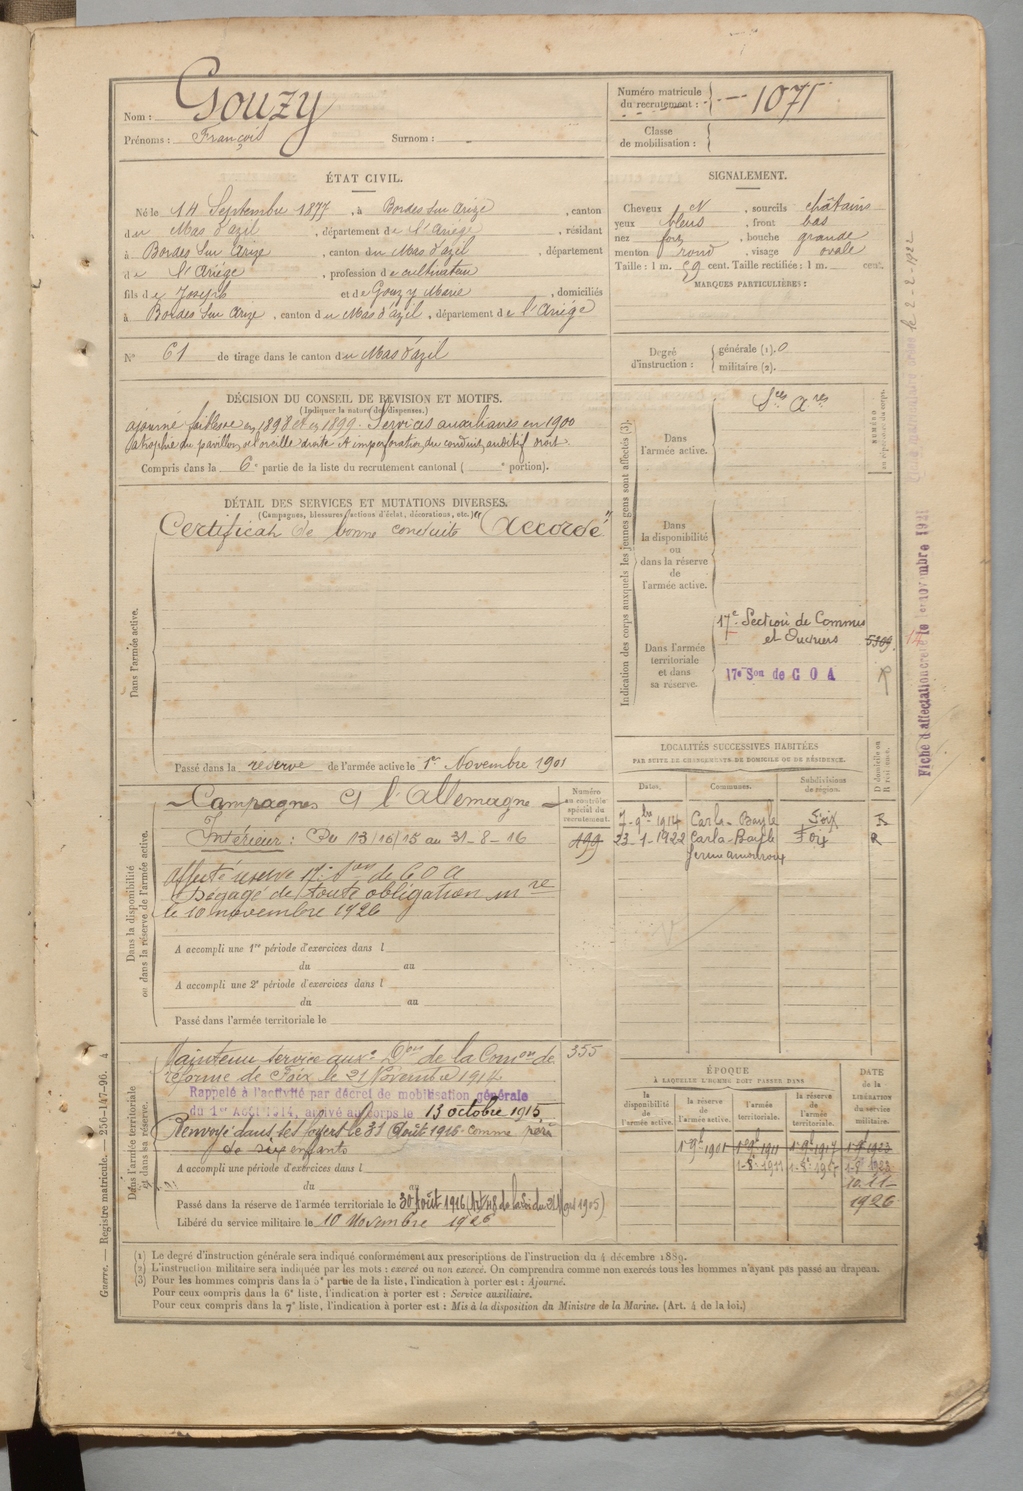 Nom : Gouzy
Prénoms : François Surnom :
Numéro matricule
du recrutement : 1075
Classe
de mobilisation :
ÉTAT CIVIL.
Né le 14 Septembre 1877, à Bordes sur Arize, canton
du Mas d'azil, département de l'Ariège, résidant
à Bordes sur Arize, canton du Mas d'azil, département
de l'Ariège, profession de cultivateur
fils de Joseph et de Gouzy Marie, domiciliés
à Bordes sur Arize, canton du Mas d'azil, département de l'Ariège
N° 61 de tirage dans le canton du Mas d'azil
SIGNALEMENT.
Cheveux N, sourcils châtains
yeux bleus, front bas
nez fort, bouche grande
menton rond, visage ovale
Taille : 1 m. 59 cent. Taille rectifiée : 1 m. cent.
MARQUES PARTICULIÈRES :
Degré
d'instruction :
générale (1). 0
militaire (2).
DÉCISION DU CONSEIL DE REVISION ET MOTIFS.
(Indiquer la nature des dispenses.)
ajourné faiblesse en 1898 et en 1899. Services auxiliaires en 1900
atrophie du pavillon de l'oreille droite et imperforation du conduit auditif droit.
Compris dans la 6e partie de la liste du recrutement cantonal ( e portion).
DÉTAIL DES SERVICES ET MUTATIONS DIVERSES.
(Campagnes, blessures, actions d'éclat, décorations, etc.)
Certificat de bonne conduite "Accordé"
Dans l'armée active.
Passé dans la réserve de l'armée active le 1er Novembre 1901
Indication des corps auxquels les jeunes gens sont affectés (3).
NUMÉRO
au répertoire du corps.
Dans
l'armée active.
Sces Ares
Dans
la disponibilité
ou
dans la réserve
de
l'armée active.
Dans l'armée
territoriale
et dans
sa réserve.
17e Section de Commis
et Ouvriers
5309
17e Son de C O A
Dans la disponibilité
ou dans la réserve de l'armée active.
Numéro
au contrôle
spécial du
recrutement.
Campagnes Ct l'Allemagne
Intérieur : Du 13/10/15 au 31-8-16
499
Affecté réserve 17e Son de C O A
Dégagé de toute obligation mre
le 10 novembre 1926
A accompli une 1re période d'exercices dans l
du au
A accompli une 2e période d'exercices dans l
du au
Passé dans l'armée territoriale le
LOCALITÉS SUCCESSIVES HABITÉES
PAR SUITE DE CHANGEMENTS DE DOMICILE OU DE RÉSIDENCE.
Dates. Communes. Subdivisions de région. D domicile ou R résidence.
7-9bre 1914 Carla-Bayle Foix R
23-1-1922 Carla-Bayle Foix R
Dans l'armée territoriale
et dans sa réserve.
Maintenu service auxre Don de la Comon de 355
réforme de Foix le 21 Novembre 1914
Rappelé à l'activité par décret de mobilisation générale
du 1er Août 1914, arrivé au corps le 13 octobre 1915
Renvoyé dans ses foyers le 31 Août 1916 comme père
de six enfants
A accompli une période d'exercices dans l
du au
Passé dans la réserve de l'armée territoriale le 30 Août 1916 (Art 48 de la loi du 21 Mars 1905)
Libéré du service militaire le 10 Novembre 1926
ÉPOQUE
À LAQUELLE L'HOMME DOIT PASSER DANS
DATE
de la
LIBÉRATION
du service
militaire.
la disponibilité de l'armée active. la réserve de l'armée active. l'armée territoriale. la réserve de l'armée territoriale.
1er 9bre 1901 1er 9bre 1911 1er 9bre 1917 1er 9bre 1923
1-8e 1911 1-8e 1917 1-8e 1923
10.11
1926
(1) Le degré d'instruction générale sera indiqué conformément aux prescriptions de l'instruction du 4 décembre 1889.
(2) L'instruction militaire sera indiquée par les mots : exercé ou non exercé. On comprendra comme non exercés tous les hommes n'ayant pas passé au drapeau.
(3) Pour les hommes compris dans la 5e partie de la liste, l'indication à porter est : Ajourné.
Pour ceux compris dans la 6e liste, l'indication à porter est : Service auxiliaire.
Pour ceux compris dans la 7e liste, l'indication à porter est : Mis à la disposition du Ministre de la Marine. (Art. 4 de la loi.)
Guerre. — Registre matricule. — 256-147-96. 4
Fiche d'affectation créée le 10 novembre 1921
le 2-2-1922